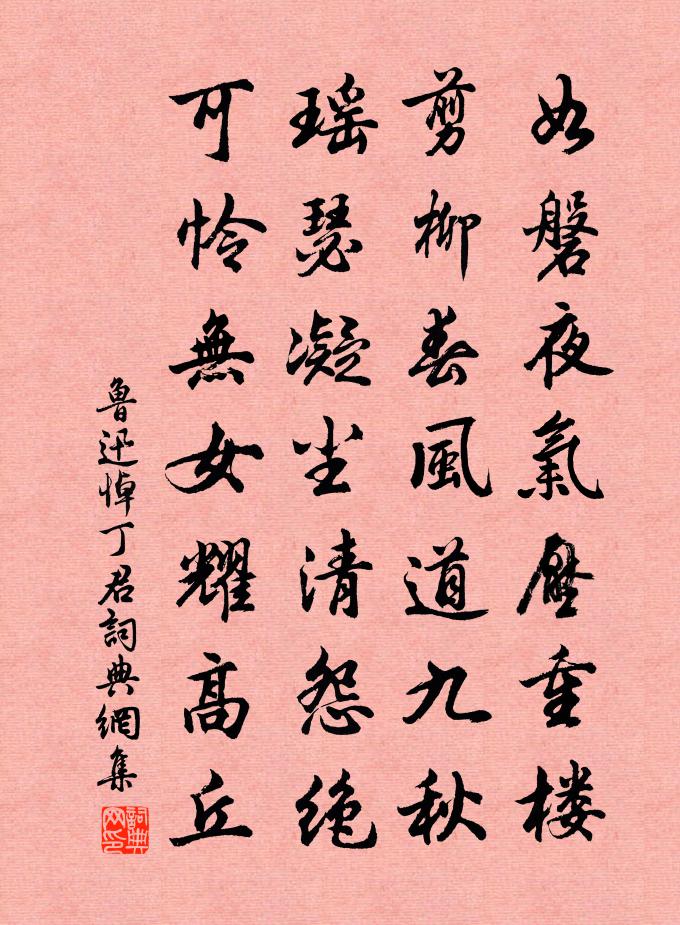 如磐夜氣壓重楼
剪柳春風道九秋
瑶瑟凝尘清怨绝
可怜無女耀高丘
魯迅悼丁君詞典網集
詞典
网印